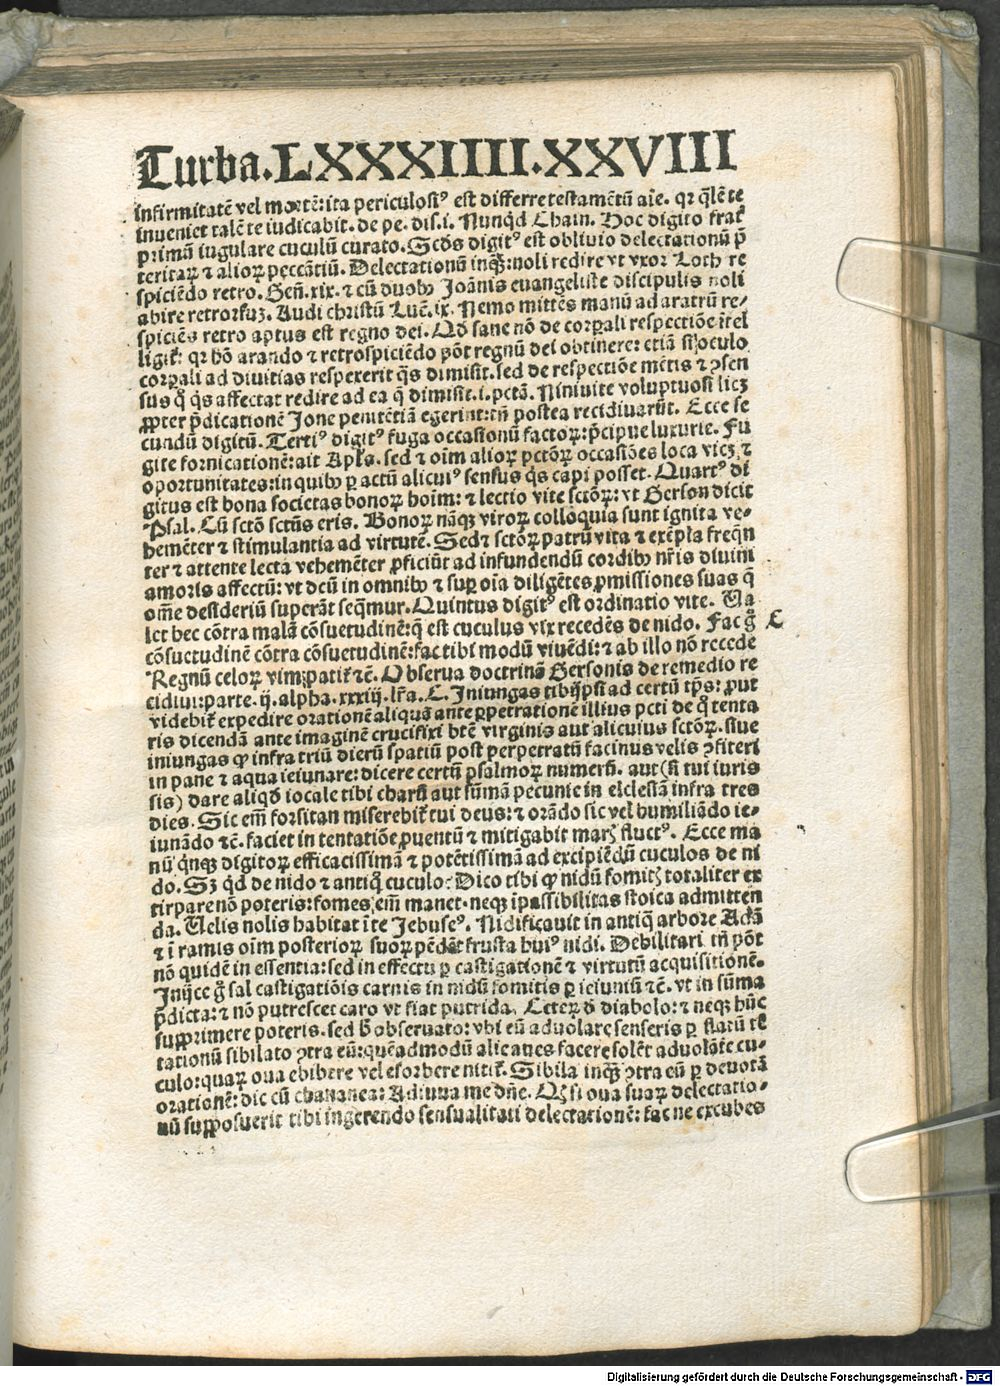 Turba.LXXXIIII.XXVIII
infirmitatē vel mortē: ita periculosiꝰ est differre testamētū aīe. qꝛ q̄lē te
inueniet talē te iudicabit. de pe. dis. i. Nunq̄d Chain. Hoc digito frat̄
primū iugulare cuculū curato. Scd̄s digitꝰ est obliuio delectationū p̄
teritaꝝ ⁊ alioꝝ peccātiū. Delectationū inqꝫ: noli redire vt vxor Loth re
spiciēdo retro. Geñ. xix. ⁊ cū duobꝰ Joānis euangeliste discipulis noli
abire retrorsuꝫ. Audi christū Luē. ix. Nemo mittēs manū ad aratrū re-
spiciēs retro aptus est regno dei. Qd̄ sane nō de corꝑali respectiōe ītel
ligit̄: qꝛ hō arando ⁊ retrospiciēdo pōt regnū dei obtinere: etiā si oculo
corꝑali ad diuitias respexerit q̄s dimisit. sed de respectiōe mētis ⁊ ꝯsen
sus q̄ q̄s affectat redire ad ea q̄ dimisit. i. pctā. Niniuite voluptuosi licꝫ
ꝓpter p̄dicationē Jone penitētiā egerint: tn̄ postea recidiuarūt. Ecce se
cundū digitū. Tertiꝰ digitꝰ fuga occasionū factoꝝ: p̄cipue luxurie. Fu
gite fornicationē: ait Apl̄s. sed ⁊ oīm alioꝝ pctōꝝ occasiōes loca vicꝫ ⁊
oportunitates: in quibꝰ ꝑ actū alicuiꝰ sensus q̄s capi posset. Quartꝰ di
gitus est bona societas bonoꝝ hoim: ⁊ lectio vite sctōꝝ: vt Gerson dicit
Psal. Cū sctō sctūs eris. Bonoꝝ nāqꝫ viroꝝ colloquia sunt ignita ve-
hemēter ⁊ stimulantia ad virtutē. Sed ⁊ sctōꝝ patrū vita ⁊ exēpla freqn̄
ter ⁊ attente lecta vehemēter ꝓficiūt ad infundendū cordibꝰ nr̄is diuini
amoris affectū: vt dcū in omnibꝰ ⁊ suꝑ oīa diligētes ꝓmissiones suas q̄
om̄e desideriū superāt seq̄mur. Quintus digitꝰ est ordinatio vite. Va
let hec cōtra malā cōsuetudinē: q̄ est cuculus vix recedēs de nido. Fac g̊ C
cōsuetudinē cōtra cōsuetudinē: fac tibi modū viuēdi: ⁊ ab illo nō recede
Regnū celoꝝ vim patit̄ ⁊c̄. Obserua doctrinā Gersonis de remedio re
cidiui: parte. ij. alpha. xxxiij. lr̄a. C. Iniungas tibijpsi ad certū tp̄s: ꝓut
videbit̄ expedire orationē aliquā ante ꝑpetrationē illius pcti de q̄ tenta
ris dicendā ante imaginē crucifixi btē virginis aut alicuius sctōꝝ. siue
iniungas ꝙ infra triū dierū spatiū post perpetratū facinus velis ꝯfiteri
in pane ⁊ aqua ieiunare: dicere certū psalmoꝝ numerū. aut (si tui iuris
sis) dare aliqd̄ iocale tibi charū aut sūmā pecunie in elclesīa infra tres
dies. Sic em̄ forsitan miserebit̄ tui deus: ⁊ orādo sic vel humiliādo ie-
iunādo ⁊c̄. faciet in tentatiōe ꝓuentū ⁊ mitigabit marꝭ fluctꝰ. Ecce ma
nū q̄nqꝫ digitoꝝ efficacissimā ⁊ potētissimā ad excipiēdū cuculos de ni
do. Sꝫ qd̄ de nido ⁊ antiq̄ cuculo: Dico tibi ꝙ nidū fomitꝭ totaliter ex
tirpare nō poteris: fomes em̄ manet. neqꝫ īpassibilitas stoica admitten
da. Uelis nolis habitat ī te Jebuseꝰ. Nidificauit in antiq̄ arbore Adā
⁊ ī ramis oīm posterioꝝ suoꝝ pēdēt frusta huiꝰ nidi. Debilitari tn̄ pōt
nō quidē in essentia: sed in effectu ꝑ castigationē ⁊ virtutū acquisitionē.
Inijce g̊ sal castigatiōis carnis in nidū fomitis ꝑ ieiuniū ⁊c̄. vt in sūma
p̄dicta: ⁊ nō putrescet caro vt fiat putrida. Ceteꝝ d̄ diabolo: ⁊ neqꝫ hūc
supprimere poteris. sed b̄ obseruato: vbi eū aduolare senseris ꝑ flatū tē
tationū sibilato ꝯtra eū: quēadmodū alie aues facere solēt aduolāte cu-
culo: quaꝝ oua ebibere vel exsorbere nitit̄. Sibila inqꝫ ꝯtra eū ꝑ deuotā
orationē: dic cū chananea: Adiuua me dn̄e. Qꝫ si oua suaꝝ delectatio-
nū supposuerit tibi ingerendo sensualitati delectationē: fac ne excubes
Digitalisierung gefördert durch die Deutsche Forschungsgemeinschaft - DFG